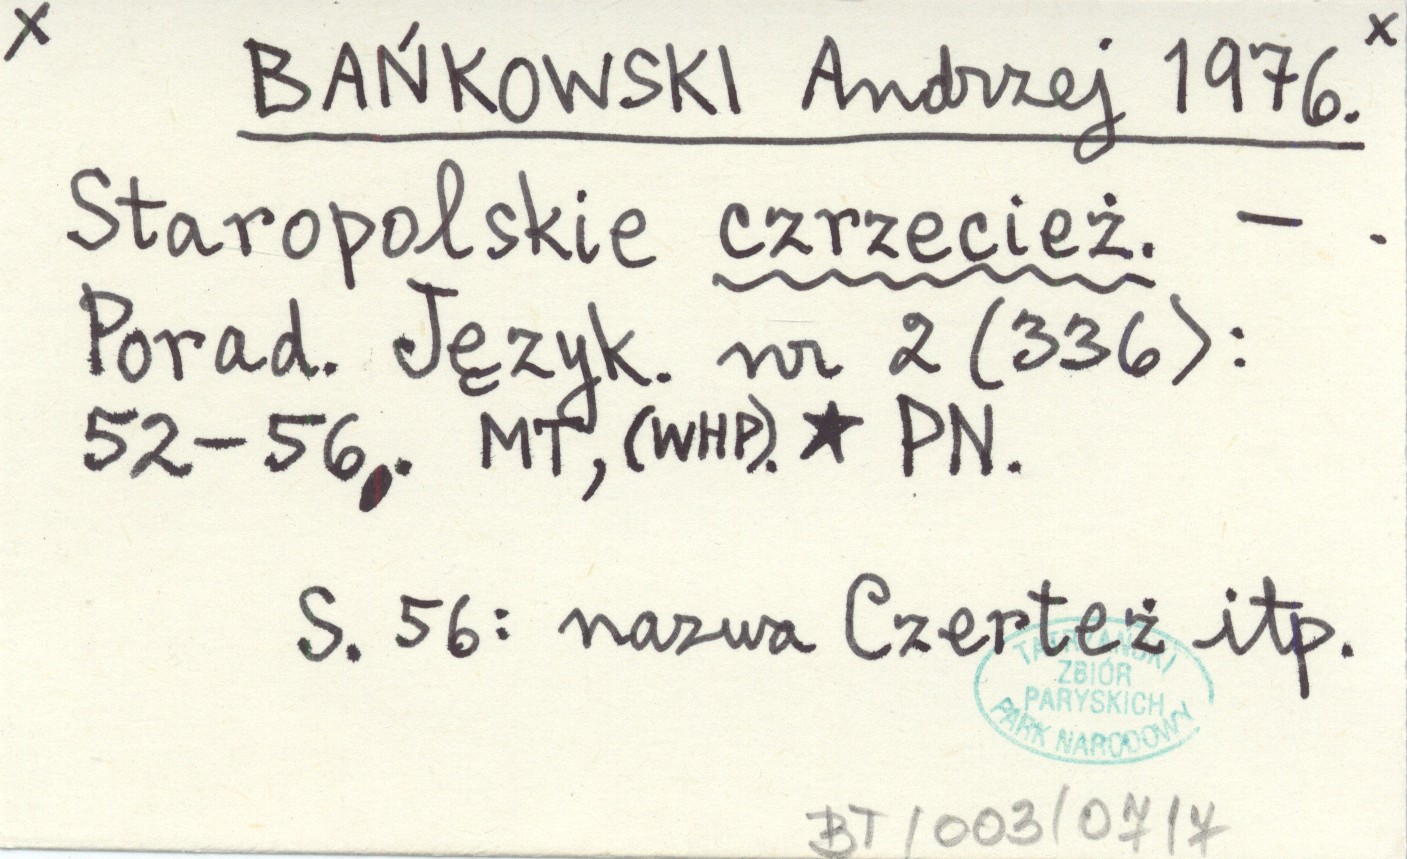 x x
BAŃKOWSKI Andrzej 1976.
Staropolskie czrzecież. – .
Porad. Język. nr 2 (336):
52–56,. MT, (WHP). ★ PN.
S. 56: nazwa Czerteż itp.
TATRZAŃSKI
ZBIÓR
PARYSKICH
PARK NARODOWY
BT/003/07/7